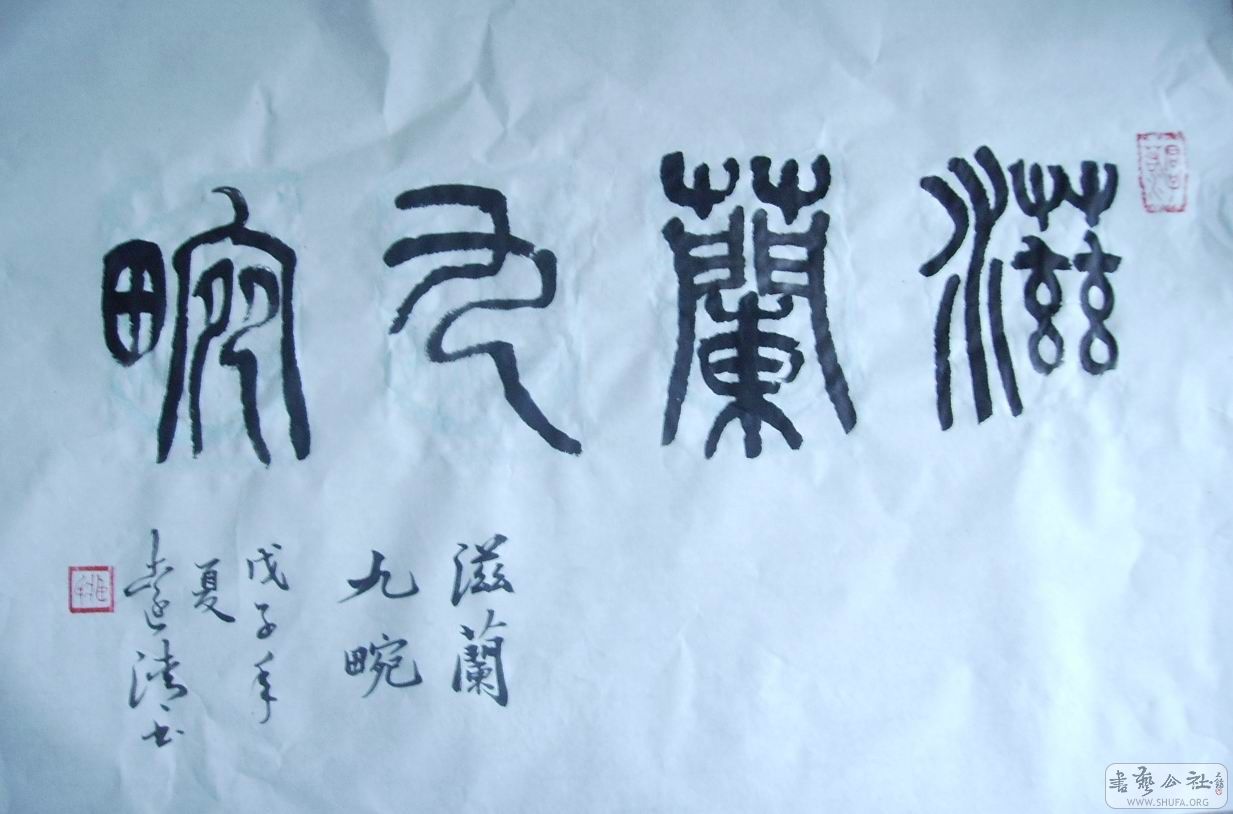 滋蘭九畹
滋蘭
九畹
戊子年
夏
清书
書藝公社
WWW.SHUFA.ORG